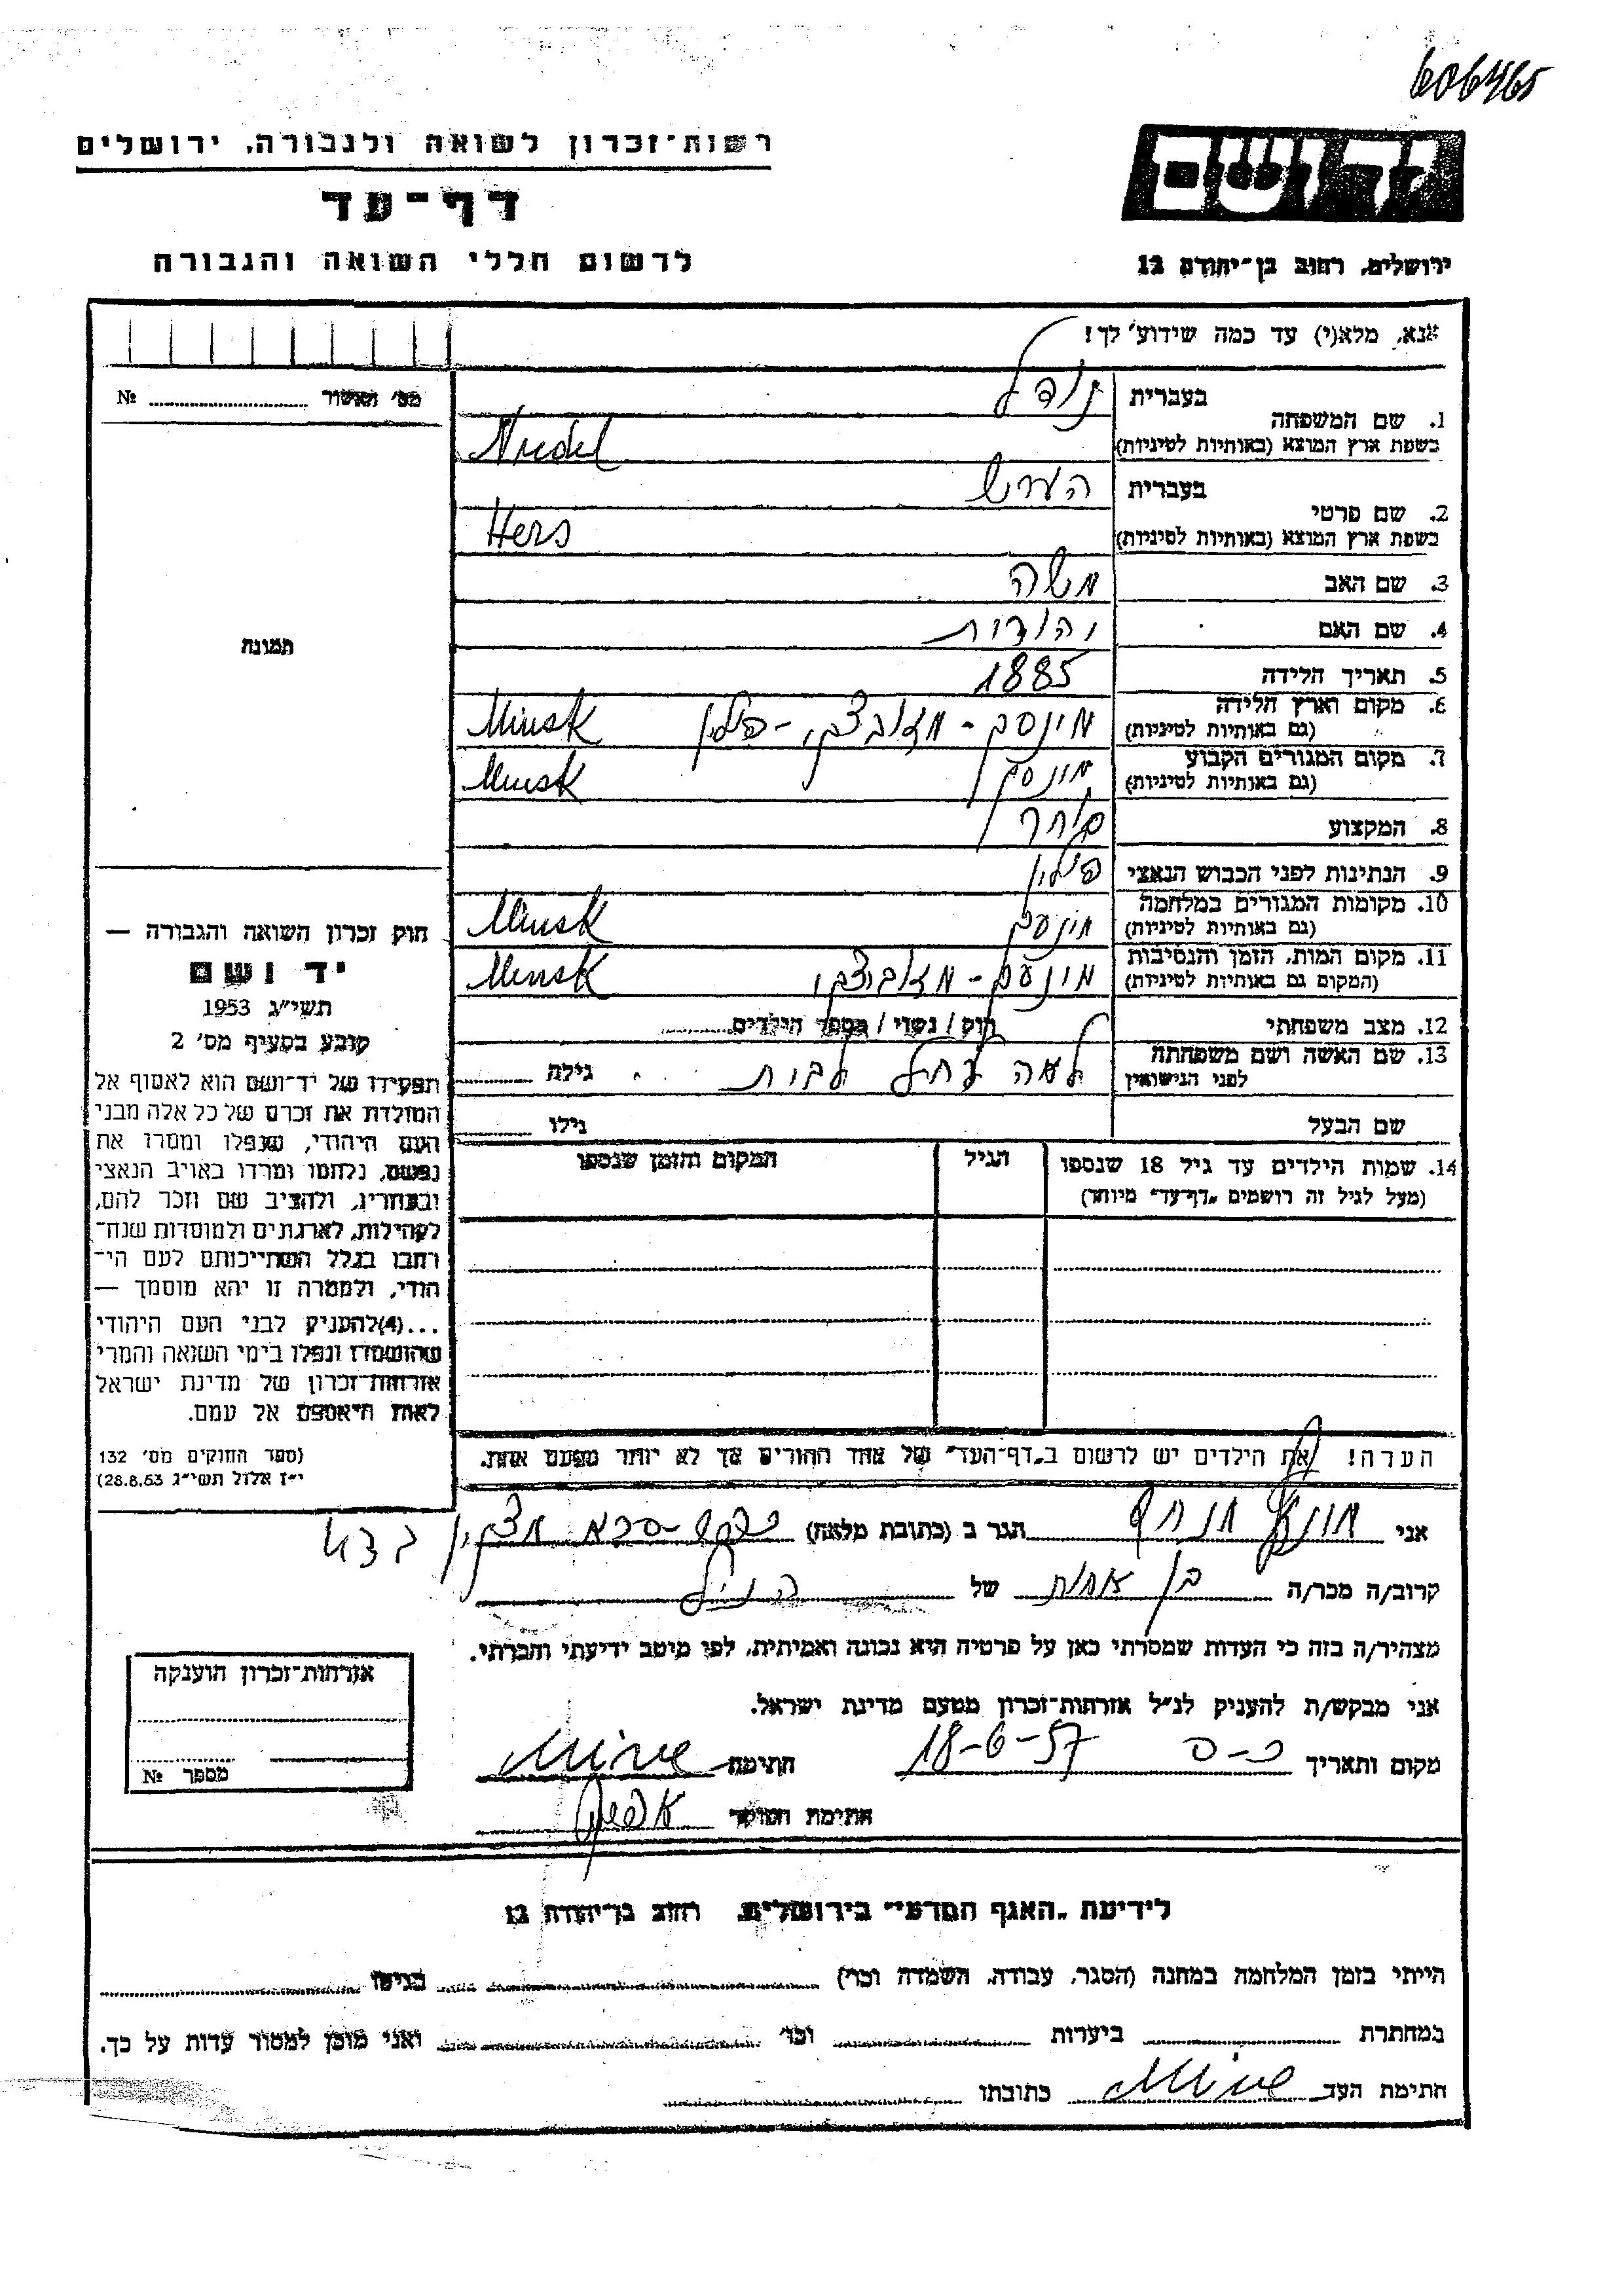 606465
רשות־זכרון לשואה ולגבורה, ירושלים
דף־עד
לרשום חללי השואה והגבורה
יד ושם
ירושלים, רחוב בן־יהודה 12
אנא, מלא(י) עד כמה שידוע לך!
מס' האשור № 
1. שם המשפחה
בעברית נודל
בשפת ארץ המוצא (באותיות לטיניות) Nudel
2. שם פרטי
בעברית הערש
בשפת ארץ המוצא (באותיות לטיניות) Hers
3. שם האב משה
4. שם האם יהודית
5. תאריך הלידה 1885
6. מקום וארץ הלידה
(גם באותיות לטיניות) מינסק - מזוביצקי - פולין Minsk
7. מקום המגורים הקבוע
(גם באותיות לטיניות) מינסק Minsk
8. המקצוע סוחר
9. הנתינות לפני הכבוש הנאצי פולין
10. מקומות המגורים במלחמה
(גם באותיות לטיניות) Minsk
11. מקום המות, הזמן והנסיבות
(המקום גם באותיות לטיניות) Minsk
12. מצב משפחתי רוק / נשוי / מספר הילדים
13. שם האשה ושם משפחתה
לפני הנישואין לאה לבית גילה
שם הבעל גילו
14. שמות הילדים עד גיל 18 שנספו
(מעל לגיל זה רושמים „דף־עד” מיוחד)
הגיל
המקום והזמן שנספו
תמונה
חוק זכרון השואה והגבורה —
יד ושם
תשי״ג 1953
קובע בסעיף מס' 2
תפקידו של יד־ושם הוא לאסוף אל
המולדת את זכרם של כל אלה מבני
העם היהודי, שנפלו ומסרו את
נפשם, נלחמו ומרדו באויב הנאצי
ובעוזריו, ולהציב שם וזכר להם,
לקהילות, לארגונים ולמוסדות שנח־
רבו בגלל השתייכותם לעם הי־
הודי, ולמטרה זו יהא מוסמך —
...(4)להעניק לבני העם היהודי
שהושמדו ונפלו בימי השואה והמרי
אזרחות־זכרון של מדינת ישראל
לאות היאספם אל עמם.
(ספר החוקים מס' 132
י״ז אלול תשי״ג 28.8.53)
הערה! את הילדים יש לרשום ב„דף־העד” של אחד ההורים אך לא יותר מפעם אחת.
אני הגר ב (כתובת מלאה)
קרוב/ה מכר/ה בן אחות של
מצהיר/ה בזה כי העדות שמסרתי כאן על פרטיה היא נכונה ואמיתית, לפי מיטב ידיעתי והכרתי.
אני מבקש/ת להעניק לנ״ל אזרחות־זכרון מטעם מדינת ישראל.
מקום ותאריך 18-6-57 חתימה
חתימת הפוקד
אזרחות־זכרון הוענקה
מספר №
לידיעת „האגף המדעי” בירושלים, רחוב בן־יהודה 12
הייתי בזמן המלחמה במחנה (הסגר, עבודה, השמדה וכו') בגיטו
במחתרת ביערות וכו' ואני מוכן למסור עדות על כך.
חתימת העד כתובתו